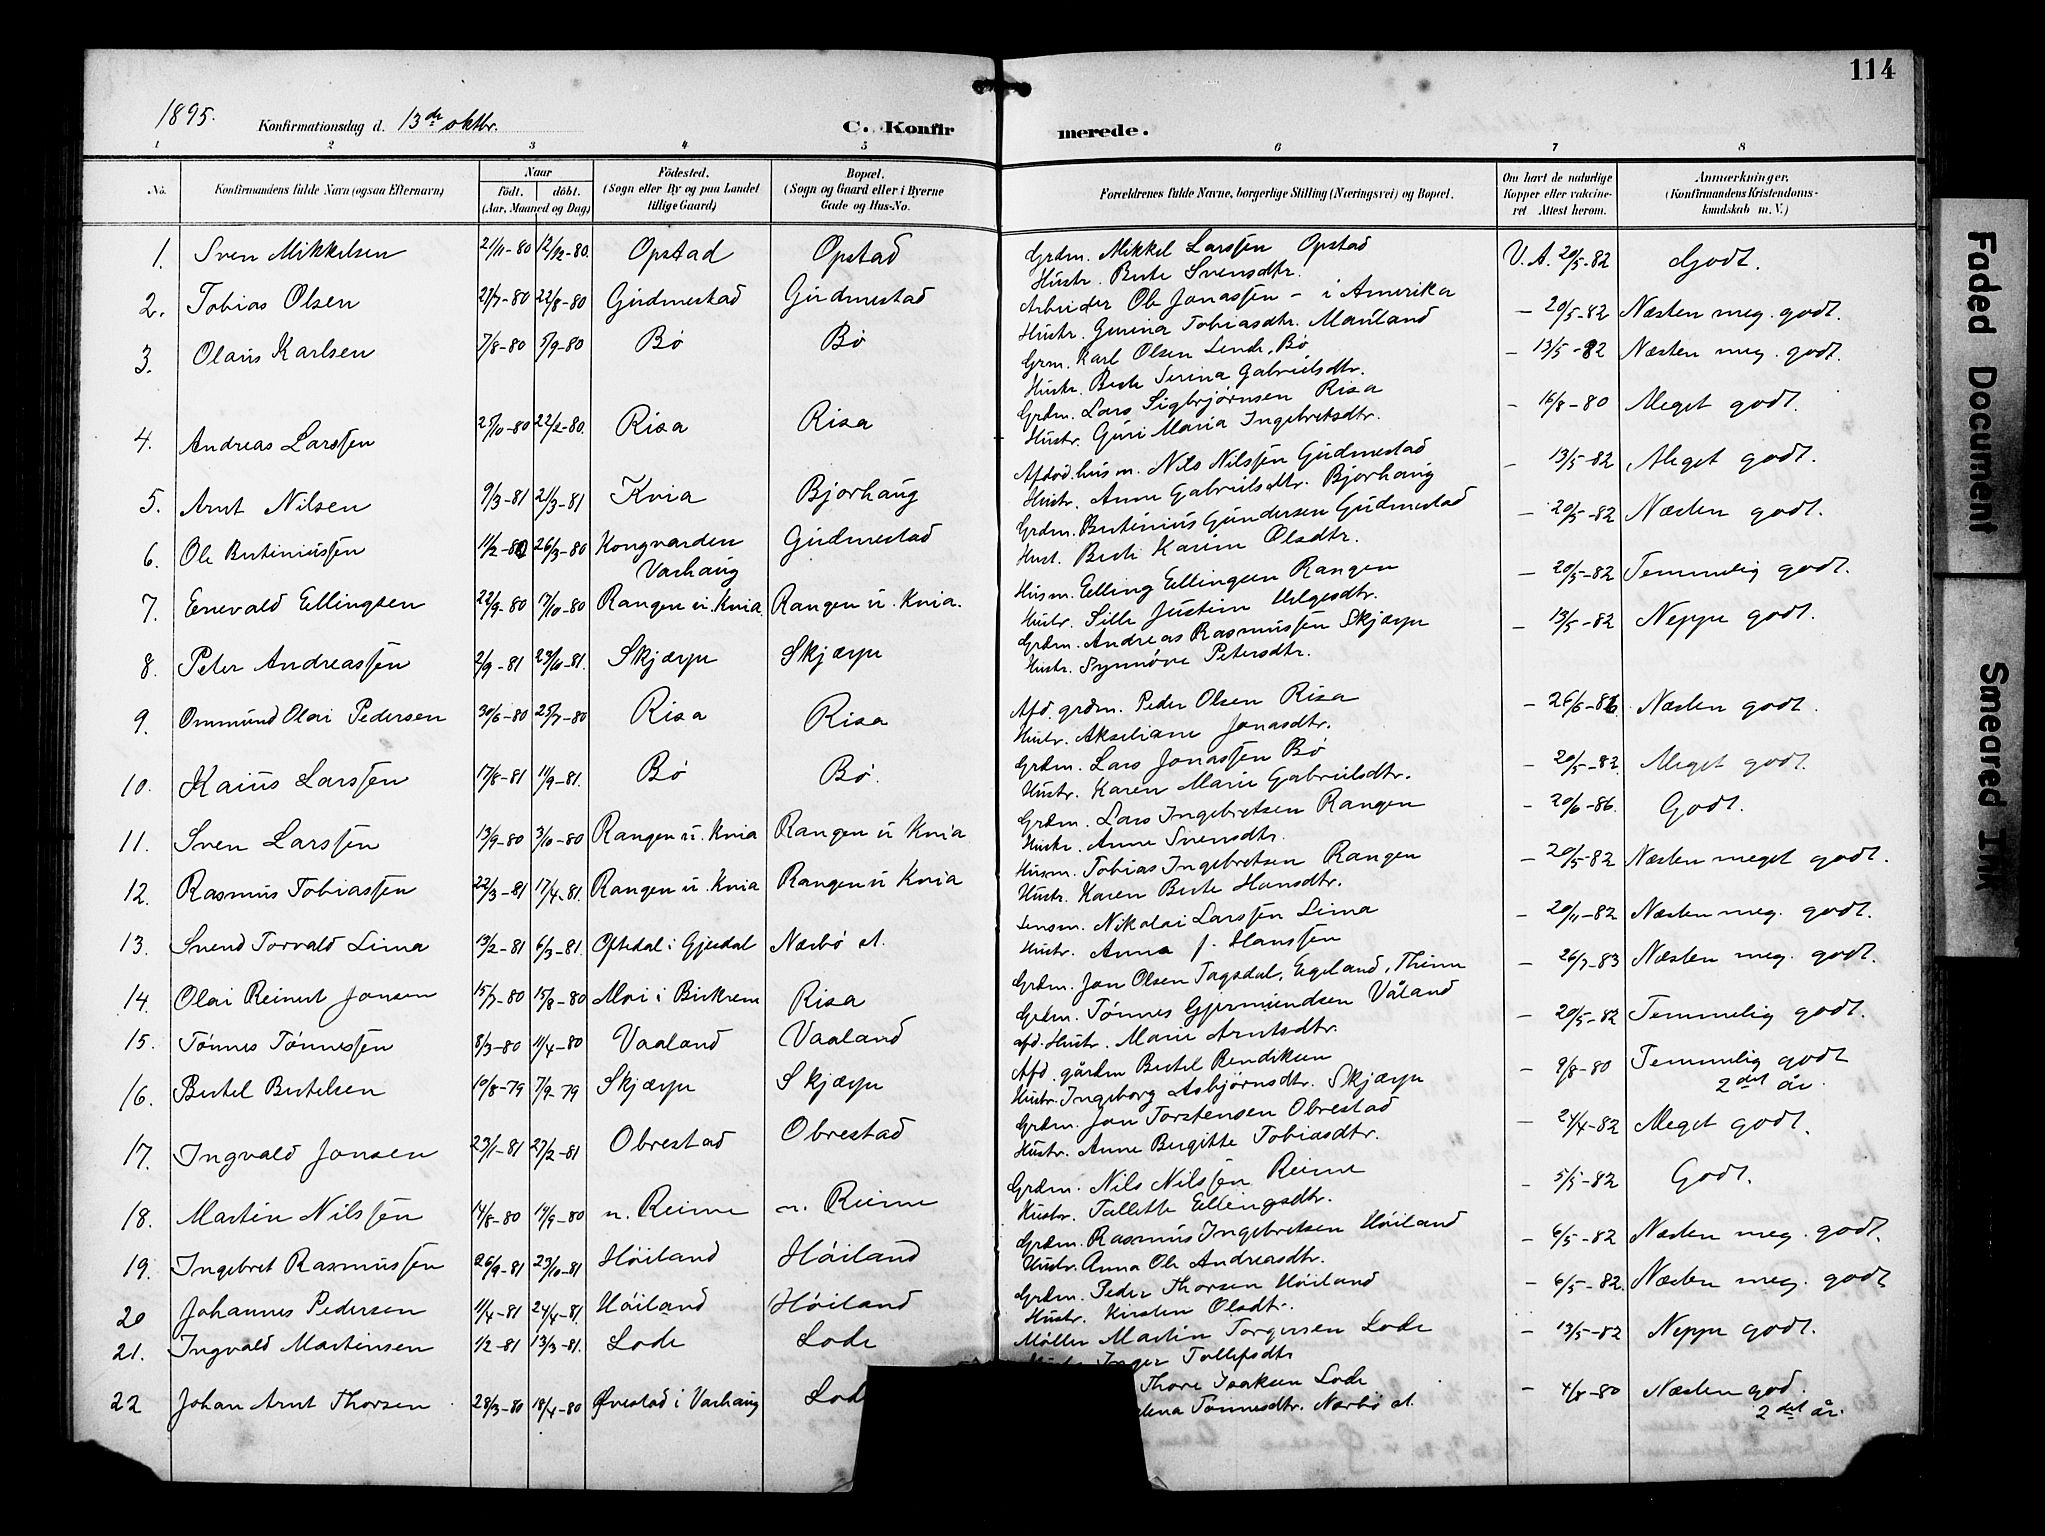 114
1895.
Konfirmationsdag d. 13de oktbr.
C. Konfirmerede.
1 2 3 4 5 6 7 8
No. Konfirmandens fulde Navn (ogsaa Efternavn) Naar Født. døbt. (Aar, Maaned og Dag) Fødested. (Sogn eller By og paa Landet tillige Gaard) Bopæl. (Sogn og Gaard eller i Byerne Gade og Hus-No. Forældrenes fulde Navne, borgerlige Stilling (Næringsvei) og Bopæl. Om havt de naturlige Kopper eller vakcineret Attest herom. Anmærkninger. (Konfirmandens Kristendomskundskab m. V.)
1. Sven Mikkelsen 21/11-80 12/12-80. Opstad Opstad Grdm. Mikkel Larssen Opstad V.A. 20/5-82 Godt.
Hustr. Berte Svensdtr.
2. Tobias Olsen 21/7-80 22/8-80 Gudmestad Gudmestad Arbeider Ole Jonassen - i Amerika - 20/5-82 Næsten meg. godt.
Hustr. Gurina Tobiasdtr. Mauland
3. Olaus Karlsen 7/8-80 5/9-80 Bø Bø Grm. Karl Olsen Lende, Bø - 13/5-82 Næsten meg. godt.
Hustr. Berte Serina Gabrielsdtr.
4. Andreas Larssen 25/10-80 22/12-80. Risa Risa Grdm. Lars Sigbrjørnsen Risa - 16/8-80 Meget godt.
Hustr. Guri Maria Ingebretsdtr.
5. Arnt Nilsen 9/3-81 21/3-81 Kvia Bjorhaug Afdød husm. Nils Nilssen Gudmestad - 13/5-82 Meget godt.
Hustr. Anne Gabrielsdtr. Bjorhaug
6. Ole Bertiniussen 11/2-80 26/3-80 Kongvarden Varhaug Gudmestad Grdm. Bertinius Gundersen Gudmestad - 20/5-82 Næsten godt.
Hust. Berte Karine Olsdtr.
7. Enevald Ellingsen 22/9-80 17/10-80 Rangen u. Kvia Rangen u. Kvia. Husm. Elling Ellingsen Rangen - 20/5-82 Temmelig godt.
Hustr. Sille Justine Helgesdtr.
8. Peter Andreassen 2/9-81 23/10-81. Skjærpe Skjærpe Grdm. Andreas Rasmussen Skjærpe - 13/5-82 Neppe godt.
Hustr. Synnøve Petersdtr.
9. Ommund Olai Pedersen 30/6-80 25/7-80 Risa Risa Afd. grdm. Peder Olsen Risa - 26/6-86. Næsten godt.
Hustr. Akseliane Jonasdtr.
10. Kaius Larssen 17/8-81 11/9-81. Bø Bø. Grdm. Lars Jonassen Bø - 20/5-82. Meget godt.
Hustr. Karen Marie Gabrielsdtr.
11. Sven Larssen 13/9-80 3/10-80 Rangen u. Kvia Rangen u Kvia Grdm. Lars Ingebretsen Rangen - 20/6-86. Godt.
Hustr. Anne Svensdtr.
12. Rasmus Tobiassen 22/3-81 17/4-81. Rangen u. Kvia Rangen u Kvia Husm. Tobias Ingebretsen Rangen - 20/5-82 Næsten meget godt.
Hustr. Karen Berte Hansdtr.
13. Svend Torvald Lima 13/2-81 6/3-81. Oftedal i Gjesdal Nærbø st. Lensm. Nikolai Larssen Lima - 20/11-82 Næsten meg. godt.
Hustr. Anna f. Hanssen
14. Olai Reinert Jonsen 15/7-80 15/8-80 Moi i Birkrem Risa Grdm. Jon Olsen Tagsdal, Egeland, Thime - 26/7-83 Næsten meg. godt.
15. Tønnes Tønnessen 8/3-80 11/4-80 Vaaland Vaaland Grdm. Tønnes Gjermundsen Våland - 20/5-82 Temmelig godt.
afd. Hustr. Marie Arntsdtr.
16. Bertel Bertelsen 10/8-79 7/9-79 Skjærpe Skjærpe Afd. gårdm Bertel Bendiksen - 9/8-80 Temmelig godt 2det år.
Hustr. Ingeborg Asbjørnsdtr. Skjærpe
17. Ingvald Jonsen 23/1-81 27/2-81 Obrestad Obrestad Grdm. Jon Torstensen Obrestad - 24/4-82 Meget godt.
Hustr. Anne Birgitte Tobiasdtr.
18. Martin Nilssen 14/8-80 19/9-80 n. Reime n. Reime Grdm. Nils Nilssen Reime - 5/5-82 Godt.
Hustr. Tallette Ellingsdtr.
19. Ingebret Rasmussen 26/9-81 23/10-81 Høiland Høiland Grdm. Rasmus Ingebretsen Høiland - 6/5-82 Næsten meg. godt.
Hustr. Anna Ole Andreasdtr.
20 Johannes Pedersen 11/4-81 24/4-81. Høiland Høiland Grdm. Peder Thorsen Høiland - 6/5-82. Næsten meg. godt
Hustr. Kirsten Olsdtr.
21. Ingvald Martinsen 1/2-81 13/3-81. Lode Lode Møller Martin Torgersen Lode - 13/5-82 Neppe godt.
Hustr. Inger Tollefsdtr
22 Johan Arnt Thorsen 28/3-80 18/4-80 Øvestad i Varhaug Lod Thore Isaksen Lode - 4/8-80 Næsten god. 2det år.
lena Tønnesdtr. Nærbø st.
Faded Document
Smeared Ink